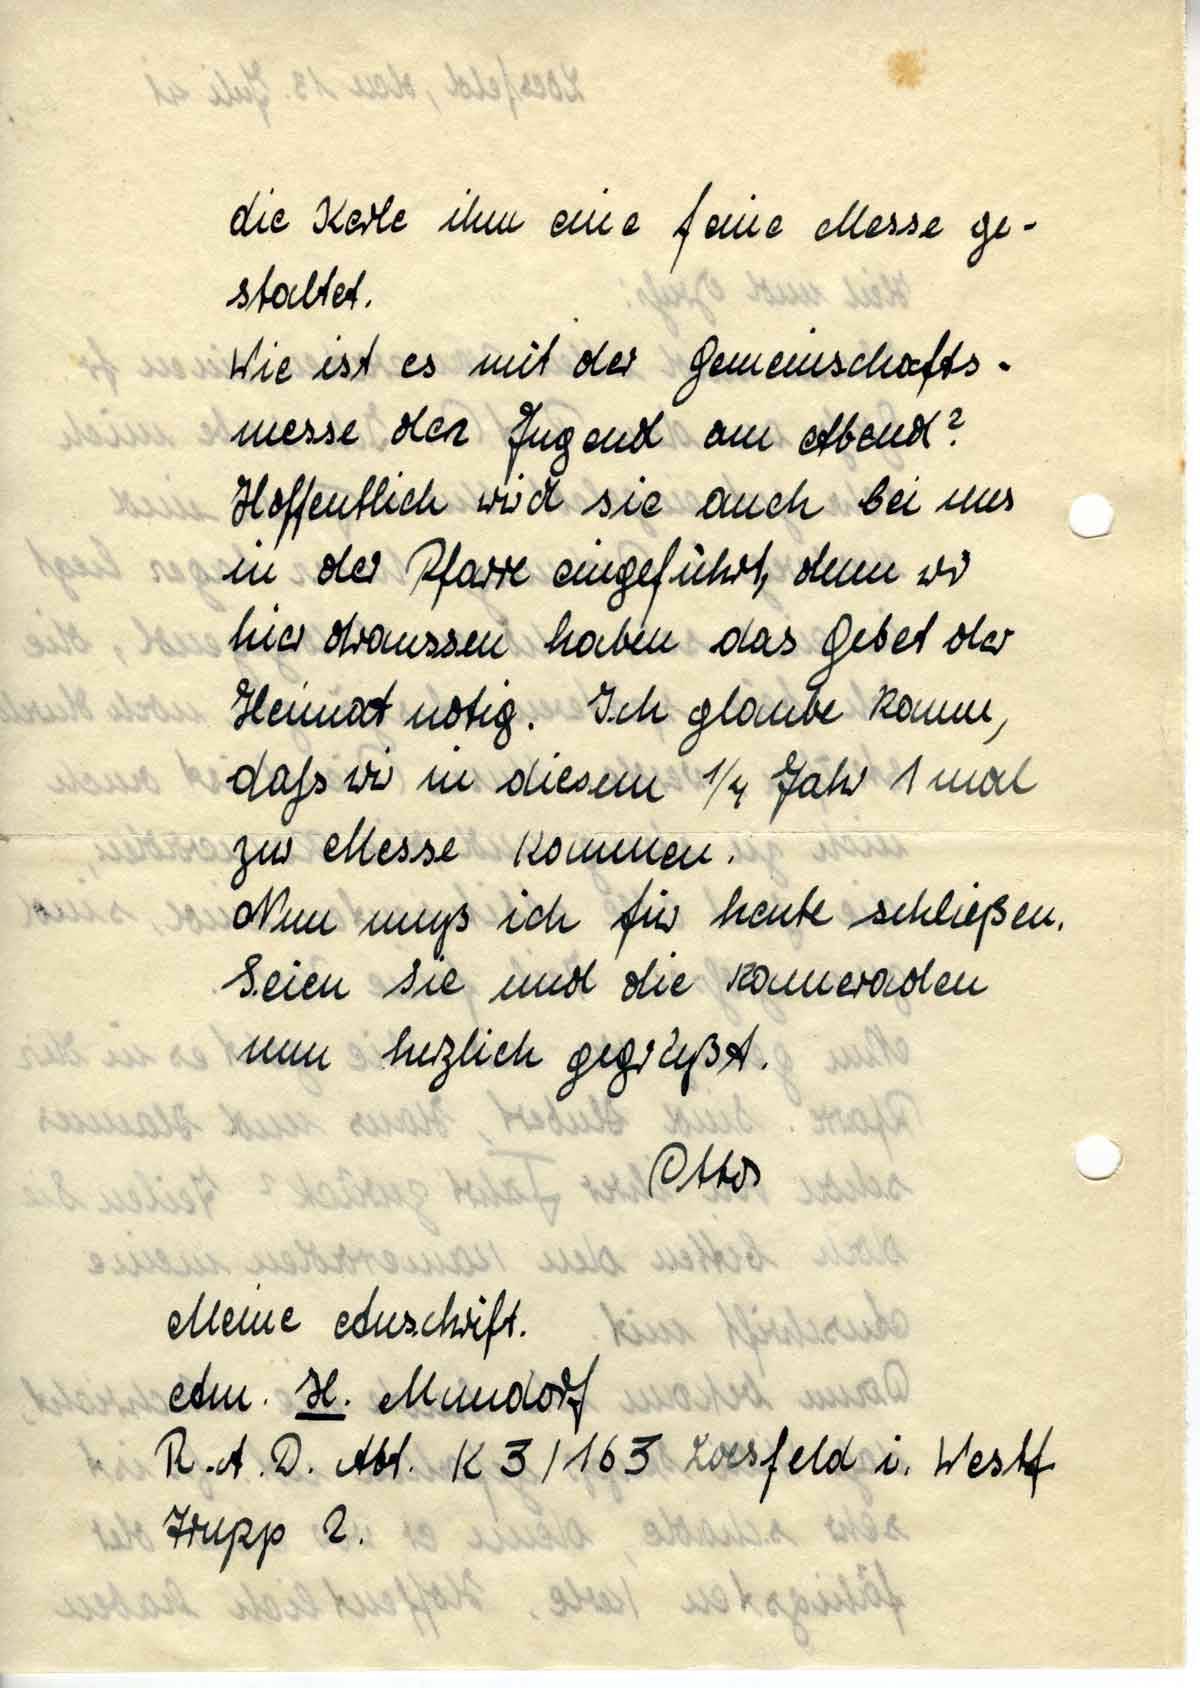 die Kerle ihm eine feine Messe ge-
staltet.
Wie ist es mit der Gemeinschafts-
messe der Jugend am Abend?
Hoffentlich wird sie auch bei uns
in der Pfarre eingeführt, denn wir
hier draussen haben das Gebet der
Heimat nötig. Ich glaube kaum,
daß wir in diesem 1/4 Jahr 1 mal
zur Messe kommen.
Nun muß ich für heute schließen.
Seien Sie und die Kameraden
nun herzlich gegrüßt.
Otto
Meine Anschrift.
Am. H. Mundorf
R.A.D. Abt. K 3/163 Coesfeld i. Westf
Trupp 2.